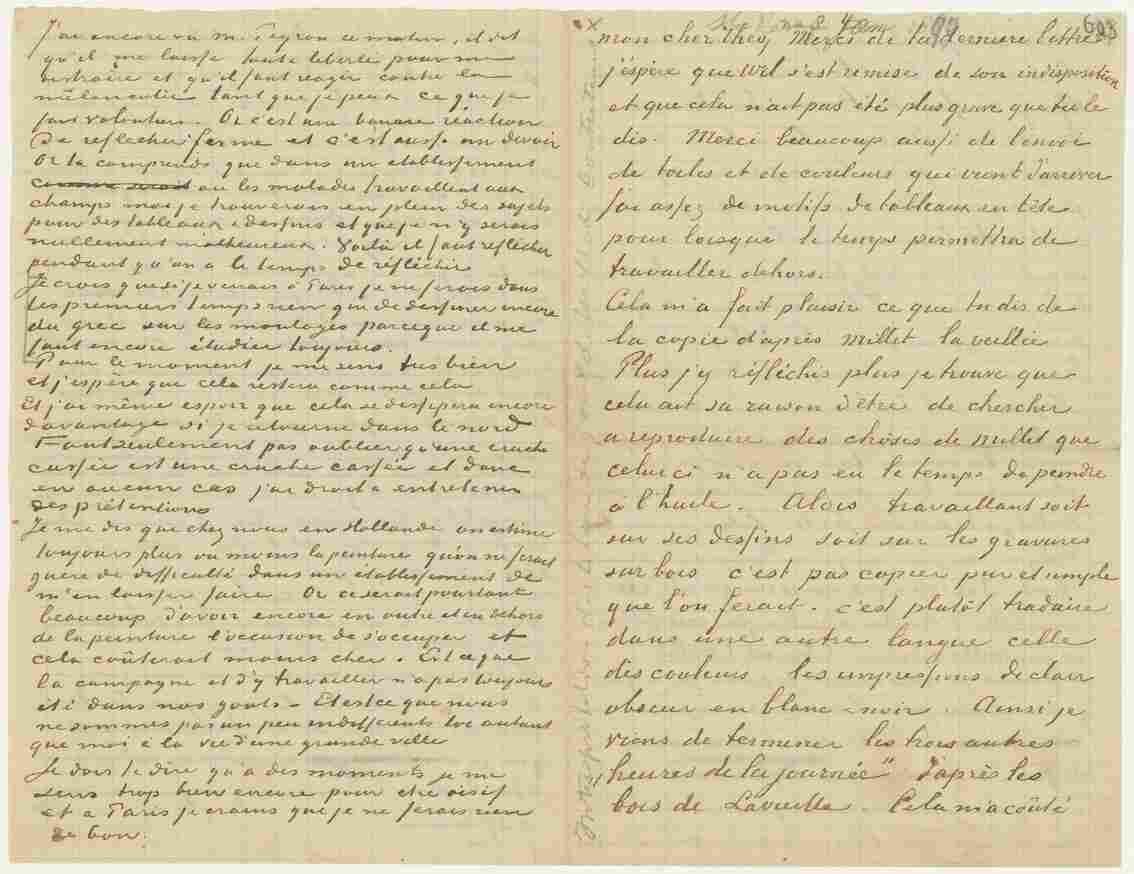 J'ai encore vu M. Peyron ce matin, il dit
qu'il me laisse toute liberté pour me
distraire et qu'il faut reagir contre la
mélancolie tant que je peux ce que je
fais volontiers. Or c'est une bonne réaction
de reflechir ferme et c'est aussi un devoir
Or tu comprends que dans un etablissement
comme serait où les malades travaillent aux
champs moi je trouverais en plein des sujets
pour des tableaux & dessins et que je n'y serais
nullement malheureux. Voilà il faut réflechir
pendant qu'on a le temps de réfléchir
Je crois que si je venais à Paris je ne ferais dans
les premiers temps rien que de dessiner encore
du grec sur les moulages parceque il me
faut encore étudier toujours.
Pour le moment je me sens très bien
et j'espère que cela restera comme cela
Et j'ai même espoir que cela se dissipera encore
davantage si je retourne dans le nord
Faut seulement pas oublier qu'une cruche
cassée est une cruche cassée et donc
en aucun cas j'ai droit à entretenir
des prétentions
Je me dis que chez nous en Hollande on estime
toujours plus ou moins la peinture qu'on ne ferait
guere de difficulté dans un établissement de
m'en laisser faire. Or ce serait pourtant
beaucoup d'avoir encore en outre et en dehors
de la peinture l'occasion de s'occuper et
cela coûterait moins cher. Est ce que
la campagne et d'y travailler n'a pas toujours
été dans nos gouts – Et est ce que nous
ne sommes pas un peu indifferents toi autant
que moi à la vie d'une grande ville
Je dois te dire qu'à des moments je me
sens trop bien encore pour être oisif
et à Paris je crains que je ne ferais rien
de bon.
603
mon cher Theo, Merci de ta derniere lettre
j'espère que Wil s'est remise de son indisposition
et que cela n'ait pas été plus grave que tu le
dis. Merci beaucoup aussi de l'envoi
de toiles et de couleurs qui vient d'arriver
J'ai assez de motifs de tableaux en tête
pour lorsque le temps permettra de
travailler dehors.
Cela m'a fait plaisir ce que tu dis de
la copie d'après Millet la veillée
Plus j'y réfléchis plus je trouve que
cela ait sa raison d'être de chercher
a reproduire des choses de Millet que
celui ci n'a pas eu le temps de peindre
à l'huile. Alors travaillant soit
sur ses dessins soit sur les gravures
sur bois c'est pas copier pur et simple
que l'on ferait. c'est plutôt traduire
dans une autre langue celle
des couleurs les impressions de clair
obscur en blanc & noir. Ainsi je
viens de terminer les trois autres
"heures de la journée" d'après les
bois de Lavieille. Cela m'a coûté